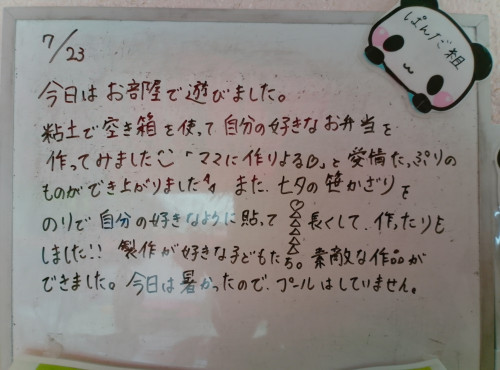 ぱんだ組
7/23
今日はお部屋で遊びました。
粘土で空き箱を使って自分の好きなお弁当を
作ってみました 「ママに作りよる♡」と愛情たっぷりの
ものができ上がりました また、七夕の笹かざりを
のりで自分の好きなように貼って 長くして、作ったりも
しました!! 製作が好きな子どもたち。素敵な作品が
できました。今日は暑かったので、プールはしていません。